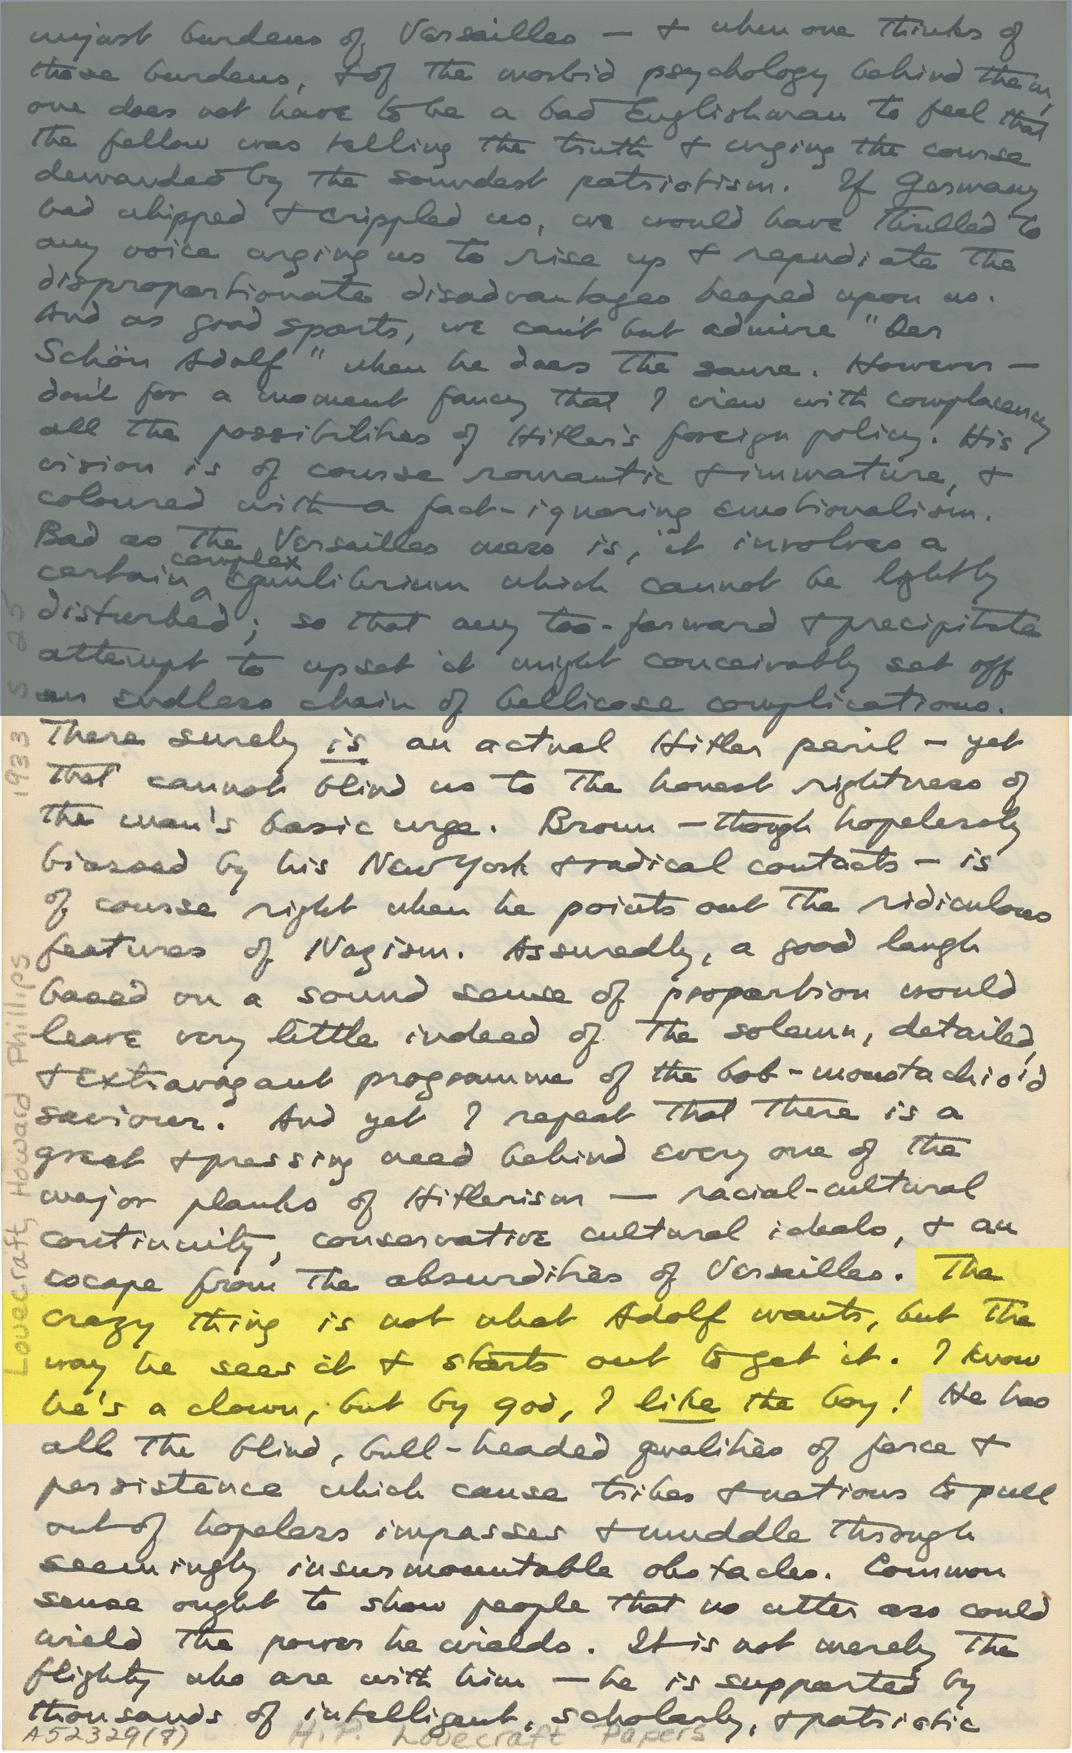 unjust burdens of Versailles — & when one thinks of
those burdens, & of the morbid psychology behind them,
one does not have to be a bad Englishman to feel that
the fellow was telling the truth & urging the course
demanded by the soundest patriotism. If Germany
had whipped & crippled us, we would have thrilled to
any voice urging us to rise up & repudiate the
disproportionate disadvantages heaped upon us.
And as good sports, we can't but admire "Der
Schön Adolf" when he does the same. However —
don't for a moment fancy that I view with complacency
all the possibilities of Hitler's foreign policy. His
vision is of course romantic & immature, &
coloured with a fact-ignoring emotionalism.
Bad as the Versailles mess is, it involves a
complex
certain ^ equilibrium which cannot be lightly
disturbed; so that any too-forward & precipitate
attempt to upset it might conceivably set off
an endless chain of bellicose complications.
There surely is an actual Hitler peril — yet
that cannot blind us to the honest rightness of
the man's basic urge. Broun — though hopelessly
biassed by his New York & radical contacts — is
of course right when he points out the ridiculous
features of Nazism. Assuredly, a good laugh
based on a sound sense of proportion would
leave very little indeed of the solemn, detailed,
& extravagant programme of the bob-moustachio'd
saviour. And yet I repeat that there is a
great & pressing need behind every one of the
major planks of Hitlerism — racial-cultural
continuity, conservative cultural ideals, & an
escape from the absurdities of Versailles. The
crazy thing is not what Adolf wants, but the
way he sees it & starts out to get it. I know
he's a clown, but by god, I like the boy! He has
all the blind, bull-headed qualities of force &
persistence which cause tribes & nations to pull
out of hopeless impasses & muddle through
seemingly insurmountable obstacles. Common
sense ought to show people that no utter ass could
wield the power he wields. It is not merely the
flighty who are with him — he is supported by
thousands of intelligent, scholarly, & patriotic
A52329(8) H.P. Lovecraft Papers
Lovecraft, Howard Phillips 1933 5 25